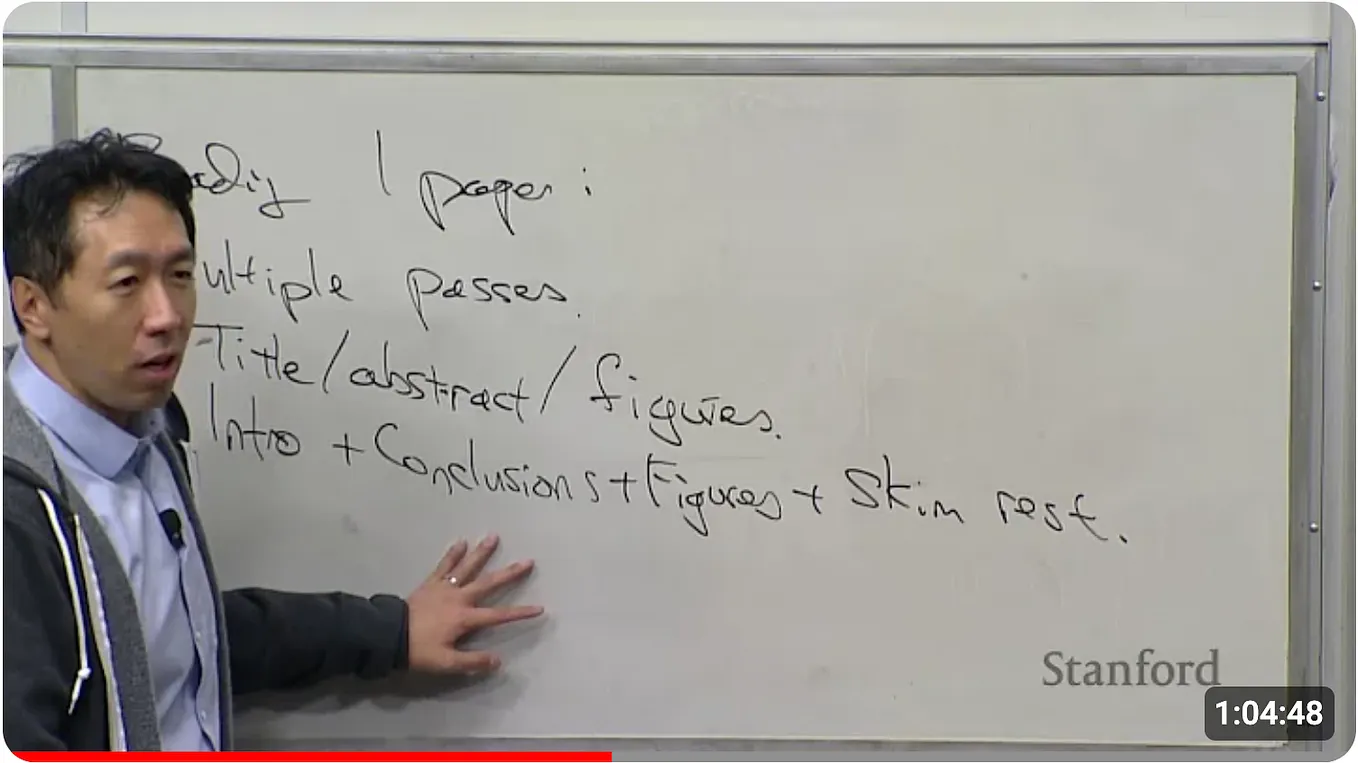 Reading 1 paper:
ultiple passes.
Title/abstract/figures.
Intro + Conclusions + Figures + Skim rest.
Stanford
1:04:48